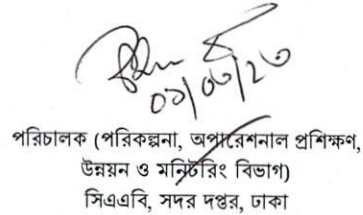 ০১/০৩/২৩
পরিচালক (পরিকল্পনা, অপারেশনাল প্রশিক্ষণ,
উন্নয়ন ও মনিটরিং বিভাগ)
সিএএবি, সদর দপ্তর, ঢাকা